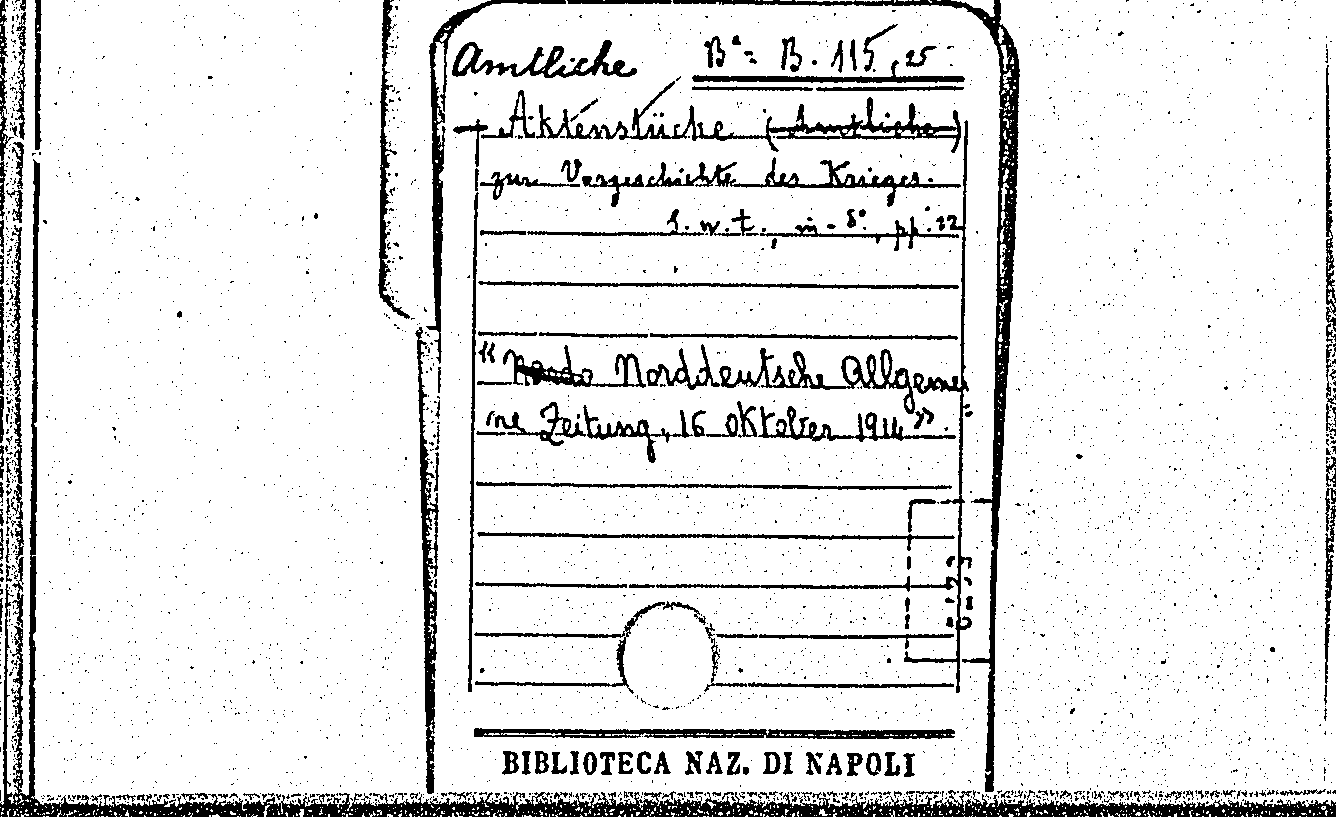 Amtliche Bª= B. 115, 25
Aktenstücke (Amtliche)
zur Vorgeschichte des Krieges.
S. n. t., in-8°, pp. 22
"Nordo Norddeutsche Allgemei
ne Zeitung, 16 Oktober 1914".
BIBLIOTECA NAZ. DI NAPOLI